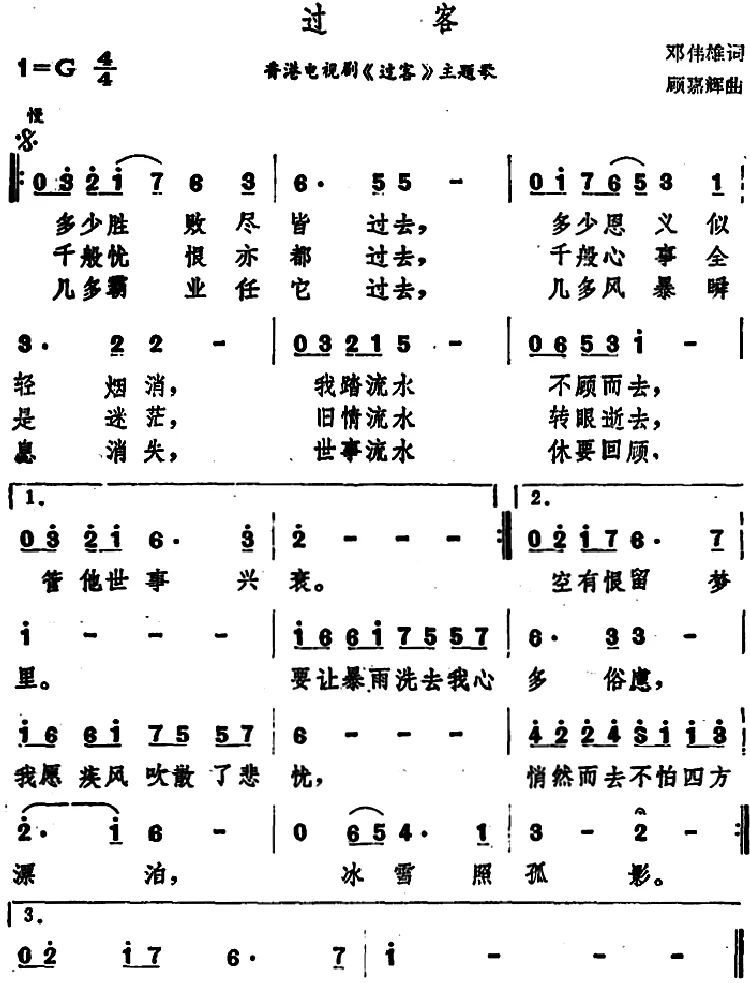 过客
1=G 4/4 香港电视剧《过客》主题歌 邓伟雄词
顾嘉辉曲
慢
0 3 2 1 7 6 3 | 6· 5 5 - | 0 1 7 6 5 3 1
多少胜 败尽 皆 过去, 多少恩 义似
千般忧 恨亦 都 过去, 千般心 事全
几多霸 业任 它 过去, 几多风 暴瞬
3· 2 2 - | 0 3 2 1 5 - | 0 6 5 3 i -
轻 烟消, 我踏流水 不顾而去,
是 迷茫, 旧情流水 转眼逝去,
息 消失, 世事流水 休要回顾,
1. 2.
0 3 2 1 6· 3 | 2 - - - :| 0 2 1 7 6· 7
管他世事 兴 衰。 空有恨留 梦
i - - - | i 6 6 i 7 5 5 7 | 6· 3 3 -
里。 要让暴雨洗去我心 多 俗虑,
i 6 6 i 7 5 5 7 | 6 - - - | 4 2 2 4 3 i i 3
我愿疾风吹散了悲 忧, 悄然而去不怕四方
2· i 6 - | 0 6 5 4· 1 | 3 - 2 - :|
漂 泊, 冰雪 照 孤 影。
3.
0 2 i 7 6· 7 | i - - - ‖